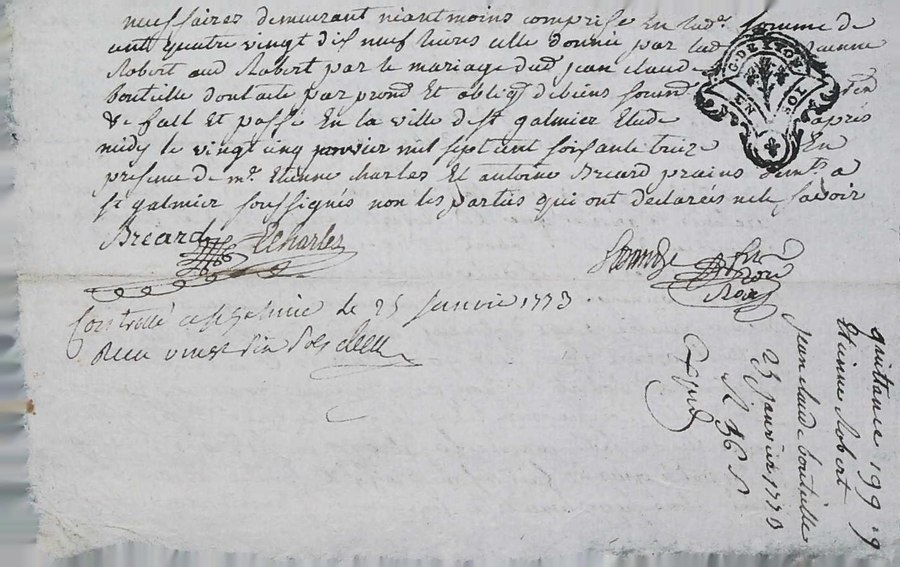 neussaires demeurant néantmoins comprise En lad.e somme de
cent quatre vingt dix neuf livres celle donnée par lad
Robert aud Robert par le mariage dud jean claude
bouteille dont acte par prom.d Et obliq.s de biens
& fait et passé En la ville de S.t galmier Etude après
midy le vingt cinq janvier mil sept cent soixante treize En
presence de m.e Etienne charles Et antoine Breard prains dem.ts a
S.t galmier soussignés non les parties qui ont declarées ne le savoir
Breard ECharles
Controllé a St galmier le 25 Janvier 1773
Receu vingt six sols
G. DE LYON
UN SOL
quittance 199 19
Etienne Robert
Jean claude bouteille
25 janvier 1773
Exped